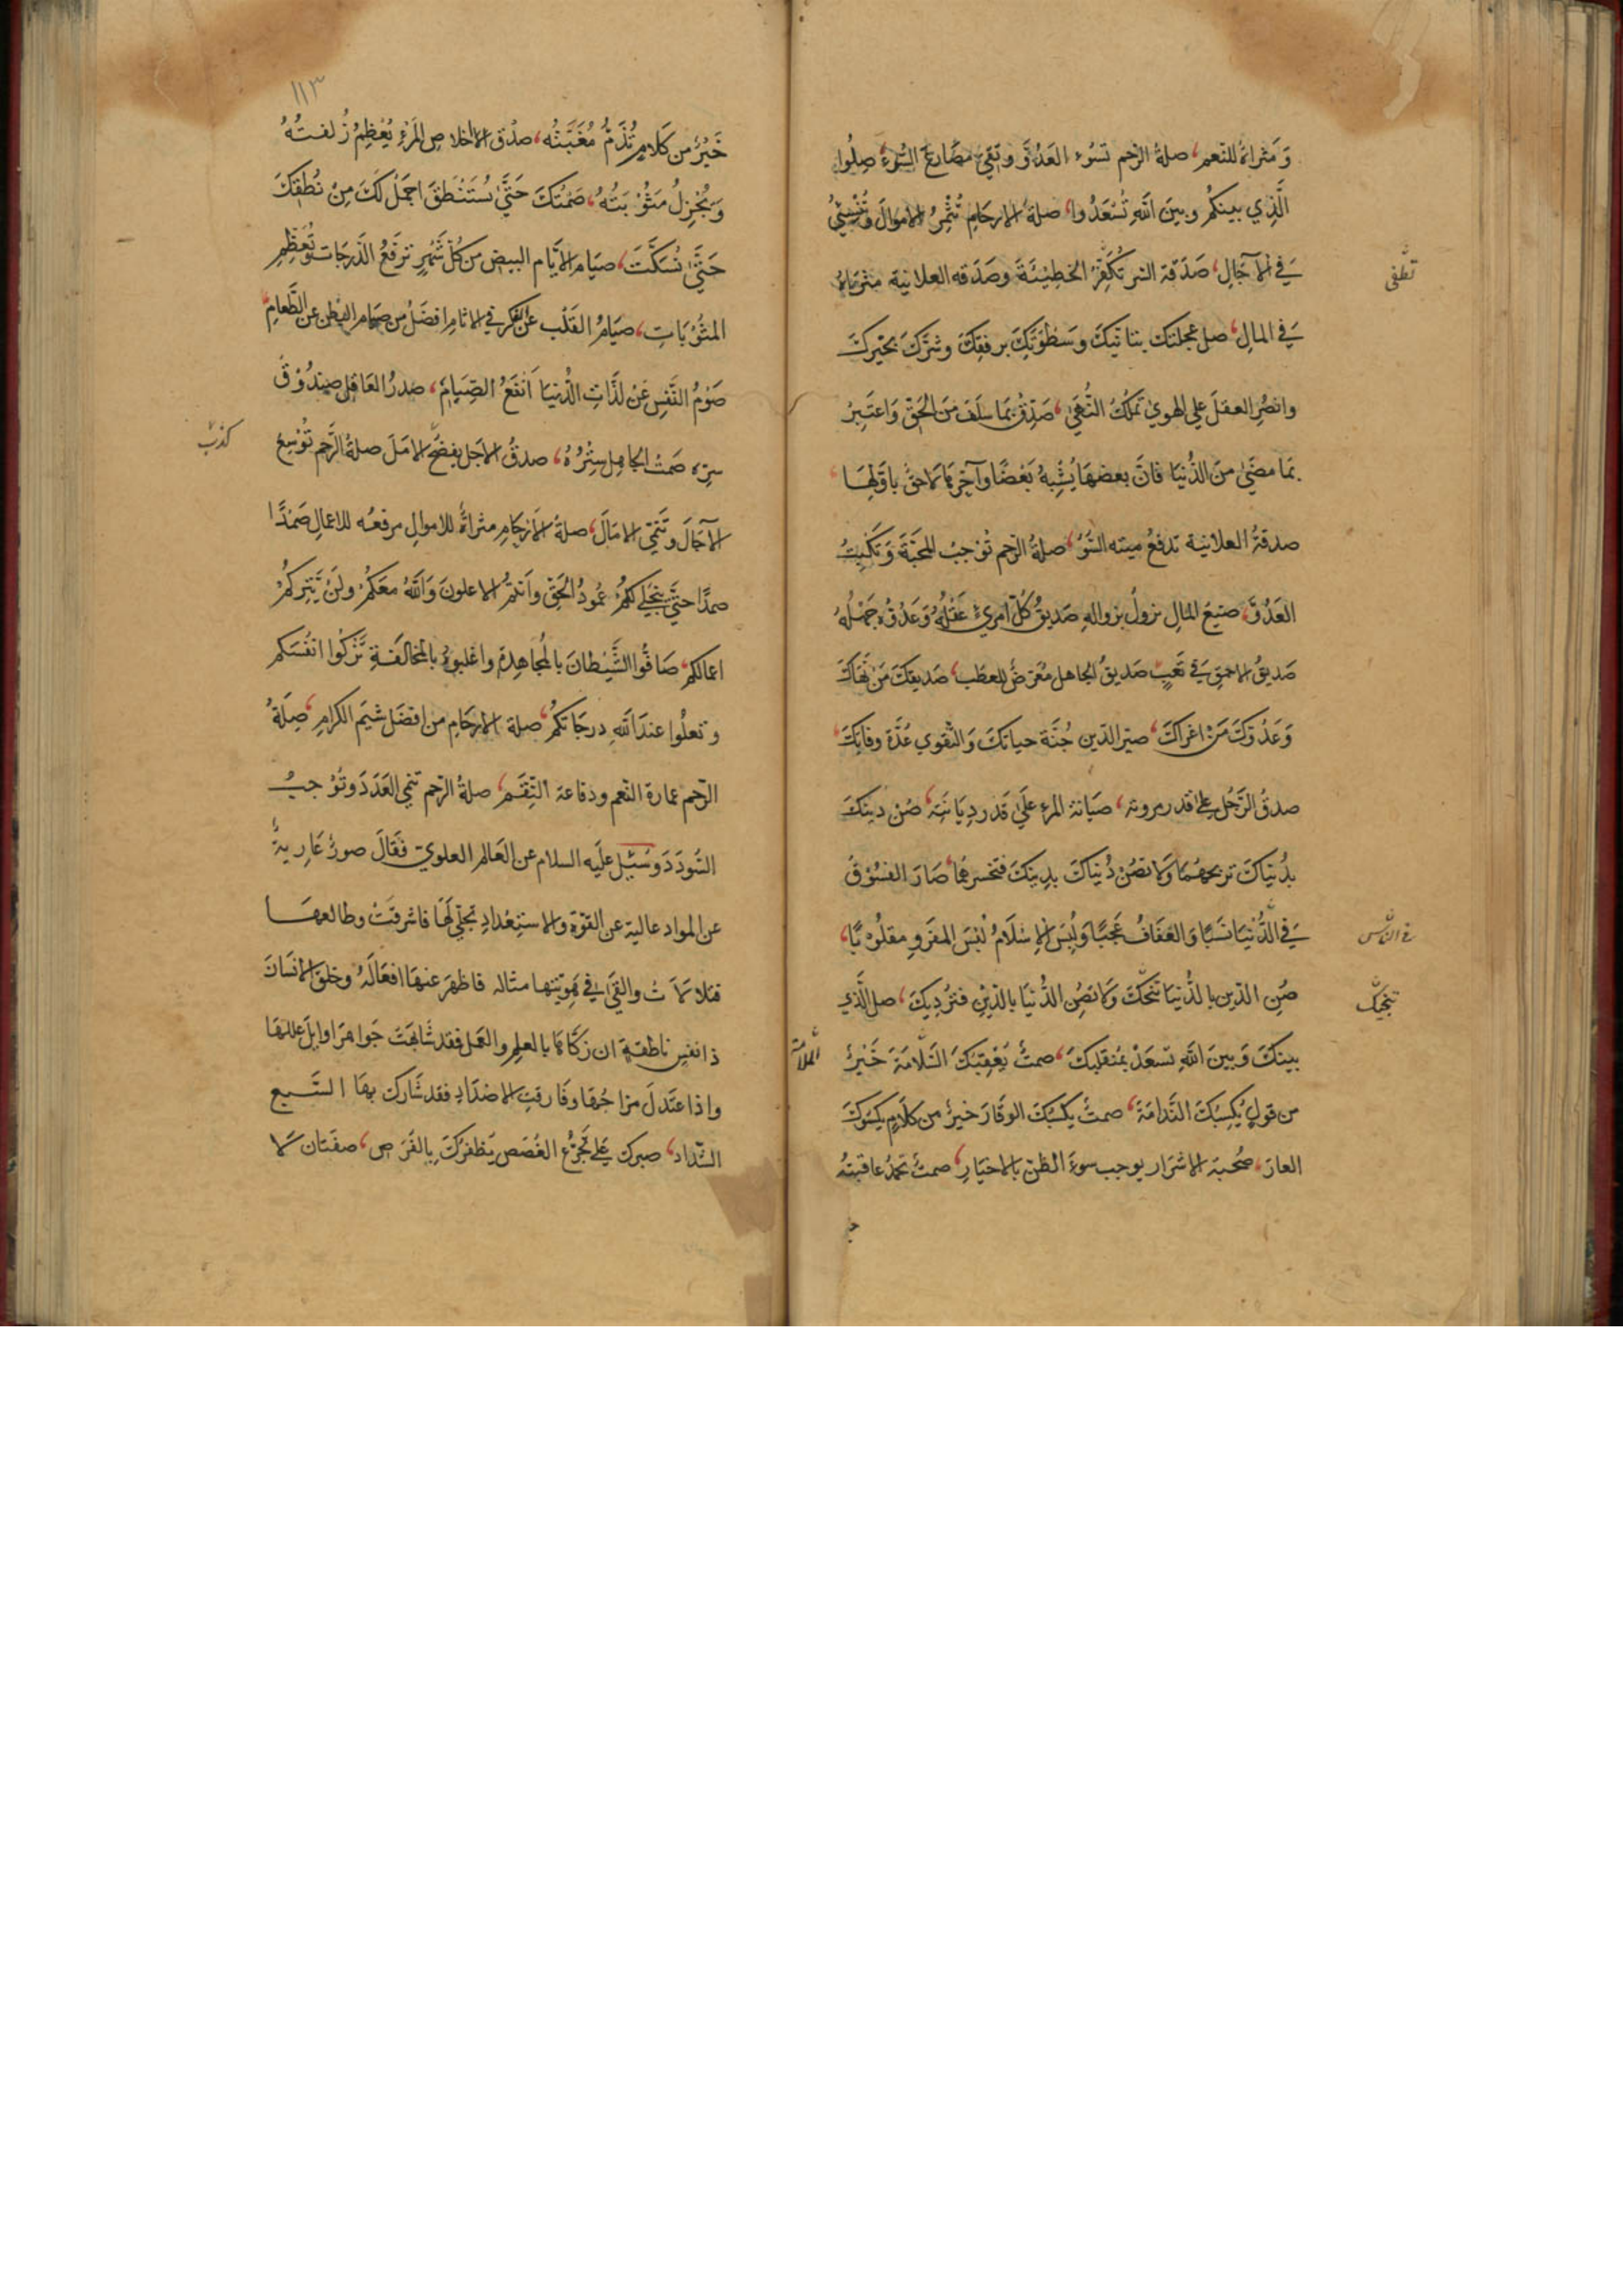 وَمَثراةٌ للنّعم، صلةُ الرّحم تسُوء العَدُوَّ وتَقي مصَارعَ السُّوءِ صِلُوا
الَّذِي بينكُم وبينَ اللهِ تُسْعَدُوا، صلةُ الارحَامِ تُثْمِرُ الاموَالَ وتُنْسِئُ
تطفى
فِي الآجَالِ، صَدَقة السّر تكَفِّرُ الخطِيئَةَ وصَدَقه العلانية مثراةٌ
فِي المالِ، صل عجلتك بتأنّيكَ وسَطْوَتَكَ برفقِكَ وشرّكَ بخيركَ
وانصُرِ العقلَ علي الهوي تَملك النُّهَى، صَدِّق بمَا سَلَفَ منَ الحَقّ وَاعتَبِرْ
بمَا مضَىٰ منَ الدُّنيَا فانَّ بعضهَا يُشْبِهُ بَعْضًا وآخِرهَا لاحقٌ باَوّلِهَا،
صدقةُ العلانية تدفعُ ميته السُّوْ، صلةُ الرّحم تُوْجبُ المحَبّةَ وَتَكْبِتُ
العَدُوَّ، صنيعُ المَالِ يزولُ بزوالهِ صَديقُ كلِّ امرِئٍ عَقْلُهُ وَعَدُوّه جَهْلُهُ
صَديقُ الاحمقِ فِي تَعَبٍ صَديقُ الجاهل مُعَرّضٌ للعطَب، صَديقكَ مَنْ نَهَاكَ
وَعَدُوّكَ مَنْ اغرَاكَ، صيّر الدّين جُنَّة حياتكَ وَالتَّقوي عُدَّة وفاتِكَ،
صدقُ الرَّجُل علَى قدر مروته، صيَانةُ المرء عَلَي قَدر دِيَانَتِه، صُنْ دينكَ
بدُنيَاكَ تربحهُمَا وَلا تصُنْ دُنيَاكَ بدِينكَ فتَخسرهُمَا، صَارَ الفسُوْقُ
في النّاس
فِي الدُّنيَا نسَبًا وَالعَفَافُ عَجَبًا وَلُبِسَ الإِسْلَامُ لُبْسَ الفَرَوِ مقلُوْبًا،
تنجيك
صُنِ الدّين بالدُّنيَا تنجّكَ وَلا تصُنِ الدُّنيَا بالدّينِ فتُردِيكَ، صل الَّذي
بينكَ وَبينَ اللهِ تسعَدْ بمُنقلَبِكَ، صمتٌ يُعْقِبُكَ السَّلامَةَ خَيْرٌ
من قولٍ يُكسِبُكَ النَّدَامَةَ، صمتٌ يكسُبكَ الوقَارَ خيرٌ من كلَامٍ يكسُوكَ
العارَ، صُحبَة الاشرَار يوجب سوءَ الظّنّ بالاخيَارِ، صمتٌ تحمدُ عاقبتهُ
١١٣
خَيْرٌ من كَلَامٍ تُذَمُّ مُغَبَّتُه، صدْق الاخلاصِ المَرْءِ يُعْظِمُ زُلفتُهُ
وَيُجْزِلُ مَثُوْبَتَهُ، صَمْتُكَ حَتَّىٰ تُسْتَنْطَقَ اجمَلُ لَكَ مِنْ نُطْقِكَ
حَتّىٰ تُسَكَّتَ، صيَام الأيَّام البيض من كُلّ شَهْرٍ ترفعُ الدَّرجَات وتُعَظِّمِ
المثُوْبَاتِ، صيَامُ القَلْب عن الفكر في الاثامِ افضَلُ من صيَام البَطن عن الطَّعامِ،
صَوْمُ النَّفسِ عَنْ لذَّاتِ الدُّنيَا اَنفَعُ الصّيَامِ، صَدرُ العَاقِلِ صِندُوْقُ
كذبَ
سِرّه صَمتُ الجَاهِلِ سِترُهُ، صدقُ الاجَل يفضَحُ الامَلَ صلةُ الرَّحِمِ تُوْسِعُ
الآجَالَ وتُنَمِّي الامَالَ، صلةُ الاَرْحَامِ مثراةٌ للاموالِ مرفعَه للاعمالِ صَمْدًا
صمدًا حتَّي ينجَلِي لكُمْ عمُودُ الحَقّ وَاَنتمُ الاعلونَ وَاللهُ معَكُمْ ولَنْ يَّتِركُمْ
اعمالكم، صَافُّوا الشَّيطانَ بالمُجَاهدةِ واغلبوهُ بالمخالفَةِ تَزْكُوا انفسَكم
وتعلُوا عندَ اللهِ درجَاتكُم، صلة الارحَامِ من افضَل شيَم الكرَامِ، صِلَةُ
الرّحم عمارة النّعم ودفاعة النّقَم، صلةُ الرّحم تنمي العَدَدَ وتُوْجبُ
السُّودَدَ وسُئِل علَيه السلام عن العَالم العلويّ فَقَالَ صورٌ عَاريةٌ
عن الموادّ عالية عن القوّةِ والاستِعْدادِ تجلّي لَهَا فاشرقَتْ وطالعهَا
فتلالاتْ والقَى في هَويّتِها مثاله فاظهرَ عنهَا افعَالَهُ وخلقَ الانسَانَ
ذا نفسٍ ناطقةٍ ان زكّاهَا بالعلمِ والعَمل فقد شَابَهتْ جَواهرَ اوايل عللهَا
واذا عتَدلَ مزاجُهَا وفارقتِ الاضدَادِ فقد شَاركَ بهَا السَّبع
الشّداد، صبرك علي تجرّعِ الغُصَص يُظفركَ بِالفُرَصِ، صفتَان لا